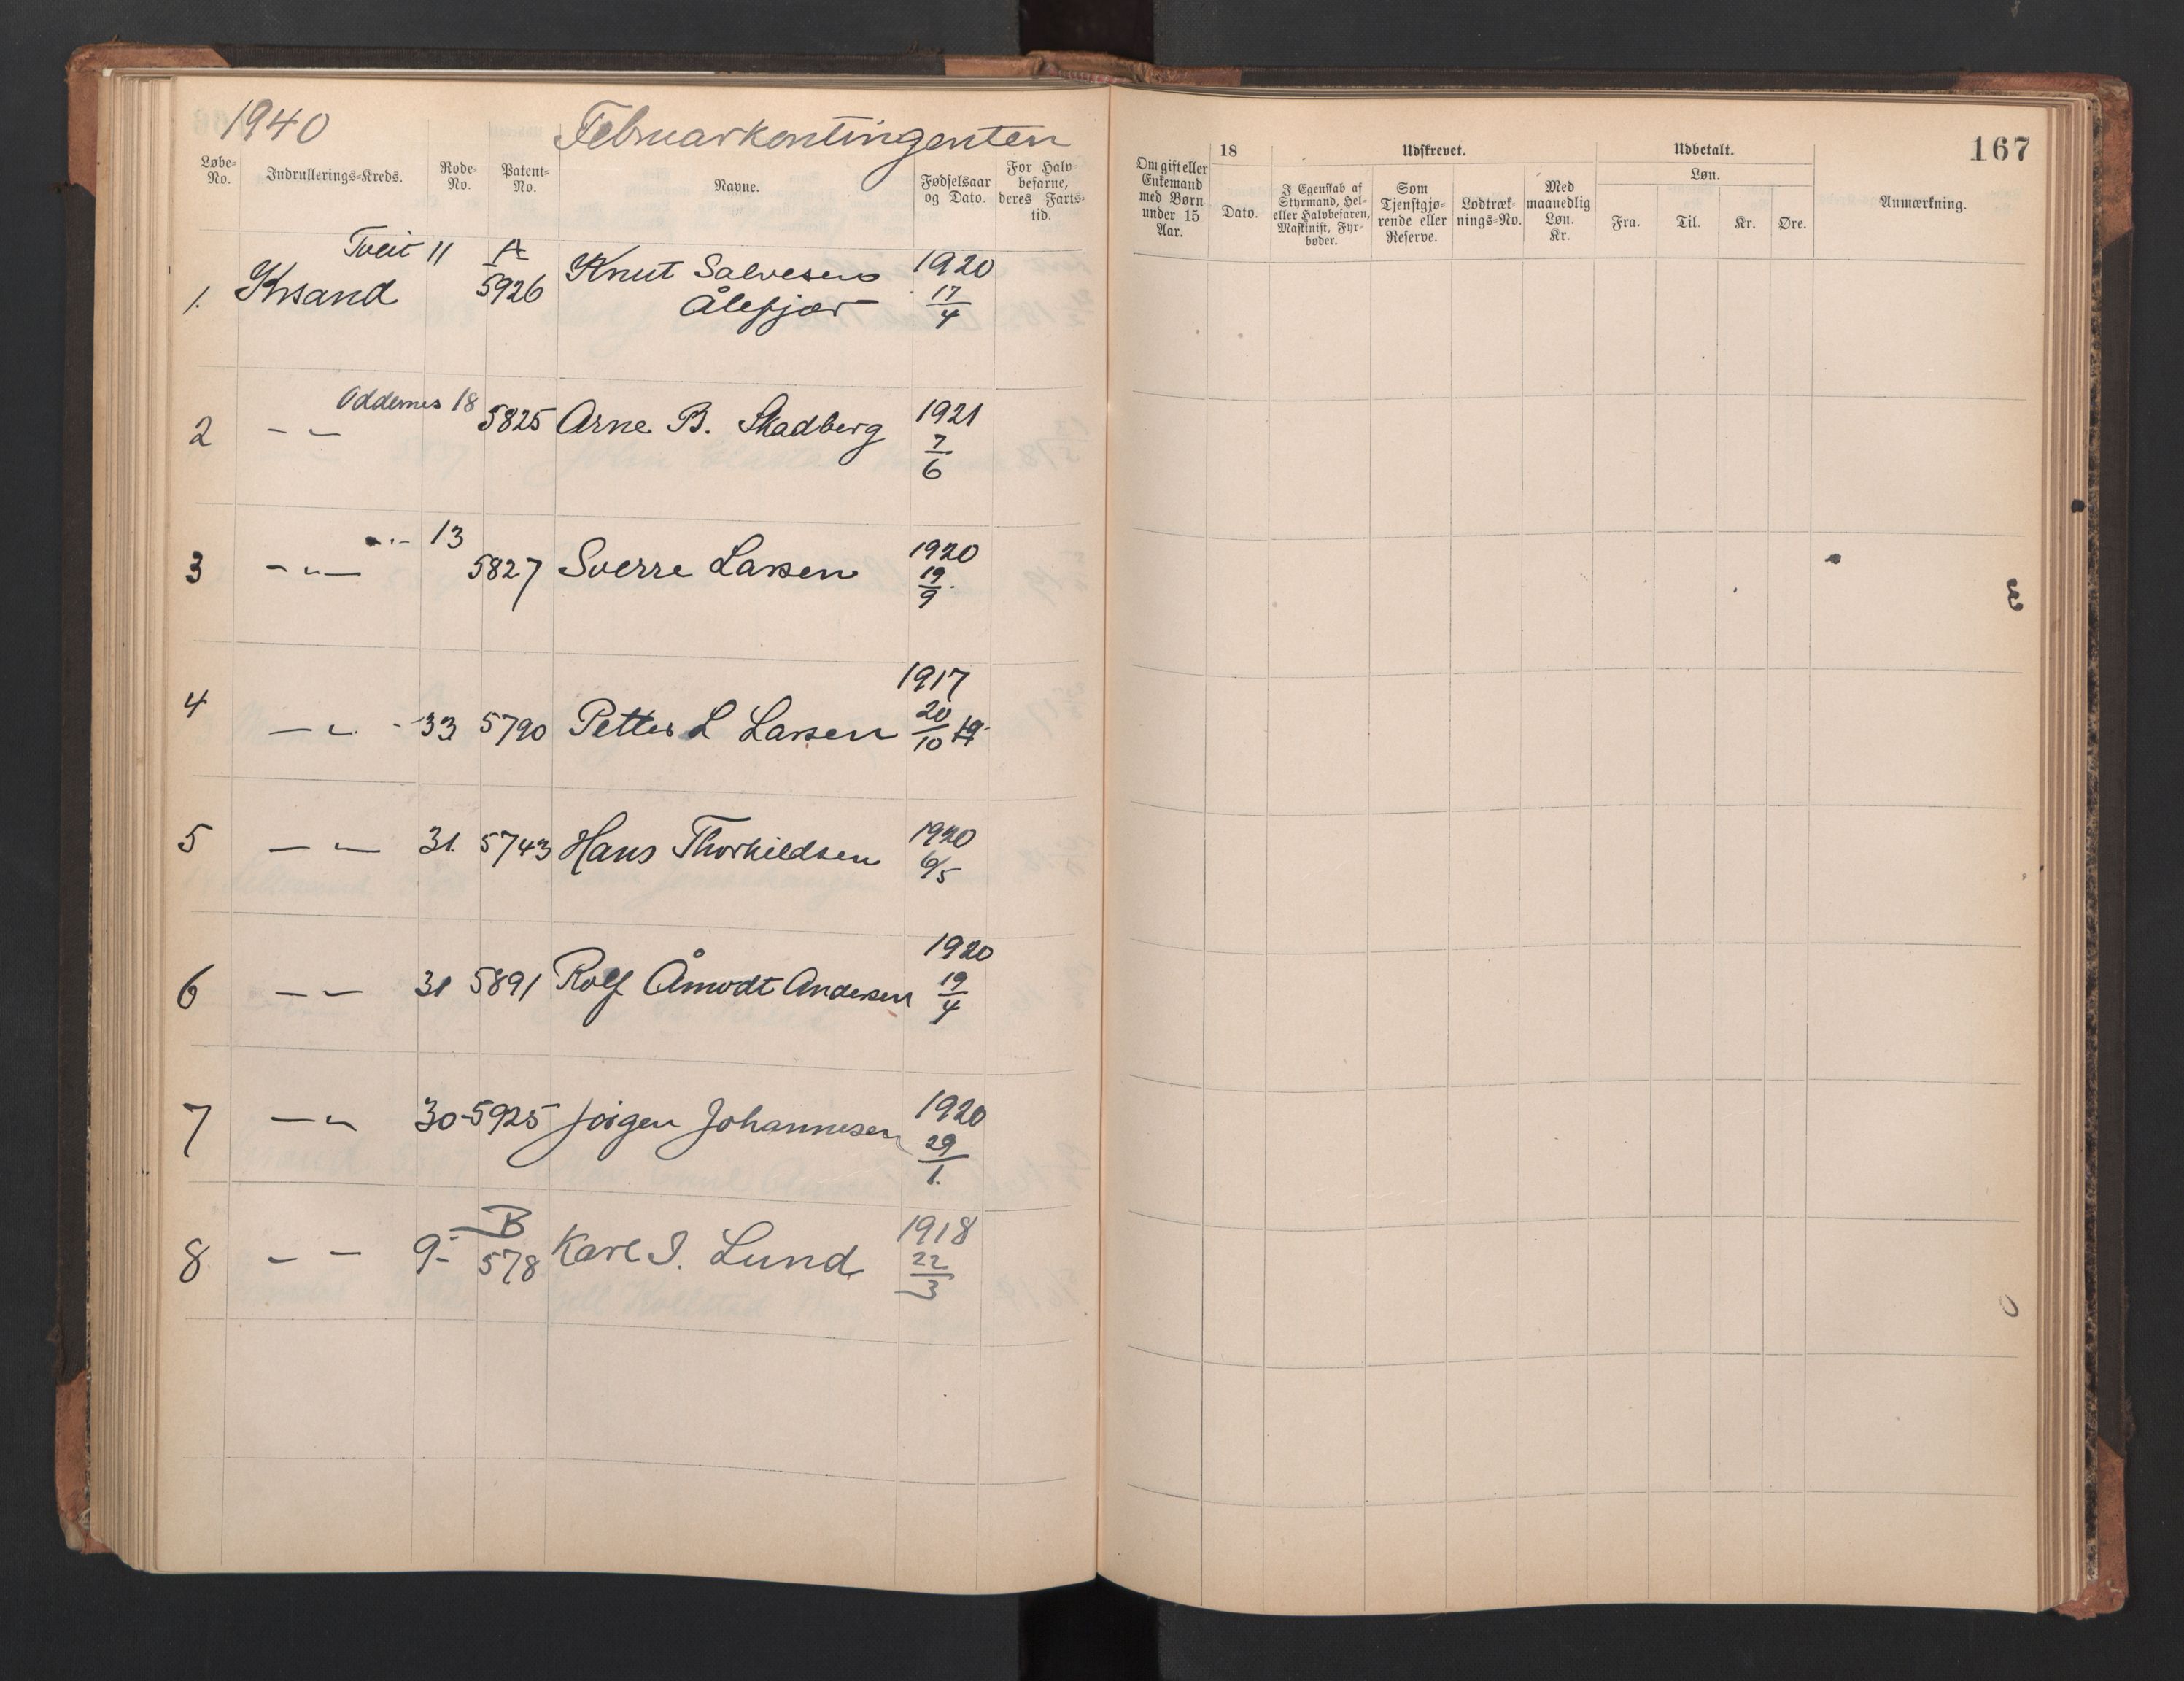 1940 Februarkontingenten
Løbe-No. Indrullerings-Kreds. Rode-No. Patent-No. Navne. Fødselsaar og Dato. For Halvbefarne, deres Fartstid.
Tveit 11 A
1. Krsand 5926 Knut Salvesen 1920
Ålefjær 17/4
Oddernes 18
2 — „ — 5825 Arne B. Stadberg 1921
7/6
— „ — 13
3 — „ — 5827 Sverre Larsen 1920
19/9
1917
4 — „ — - 33 5790 Petter L Larsen 20/10
5 — „ — 31. 5743 Hans Thorkildsen 1920
6/5
1920
6 — „ — 31 5891 Rolf Åmodt Andersen 19/4
7 — „ — 30 - 5925 Jørgen Johannesen 1920
29/1.
B
8 — „ — 9 - 578 Karl I. Lund 1918
22/3
167
Om gift eller Enkemand med Børn under 15 Aar.
18
Dato.
Udskrevet.
I Egenskab af Styrmand, Hel- eller Halvbefaren, Maskinist, Fyrbøder.
Som Tjenstgjørende eller Reserve.
Lodtræknings-No.
Med maanedlig Løn. Kr.
Udbetalt.
Løn.
Fra. Til. Kr. Øre.
Anmærkning.